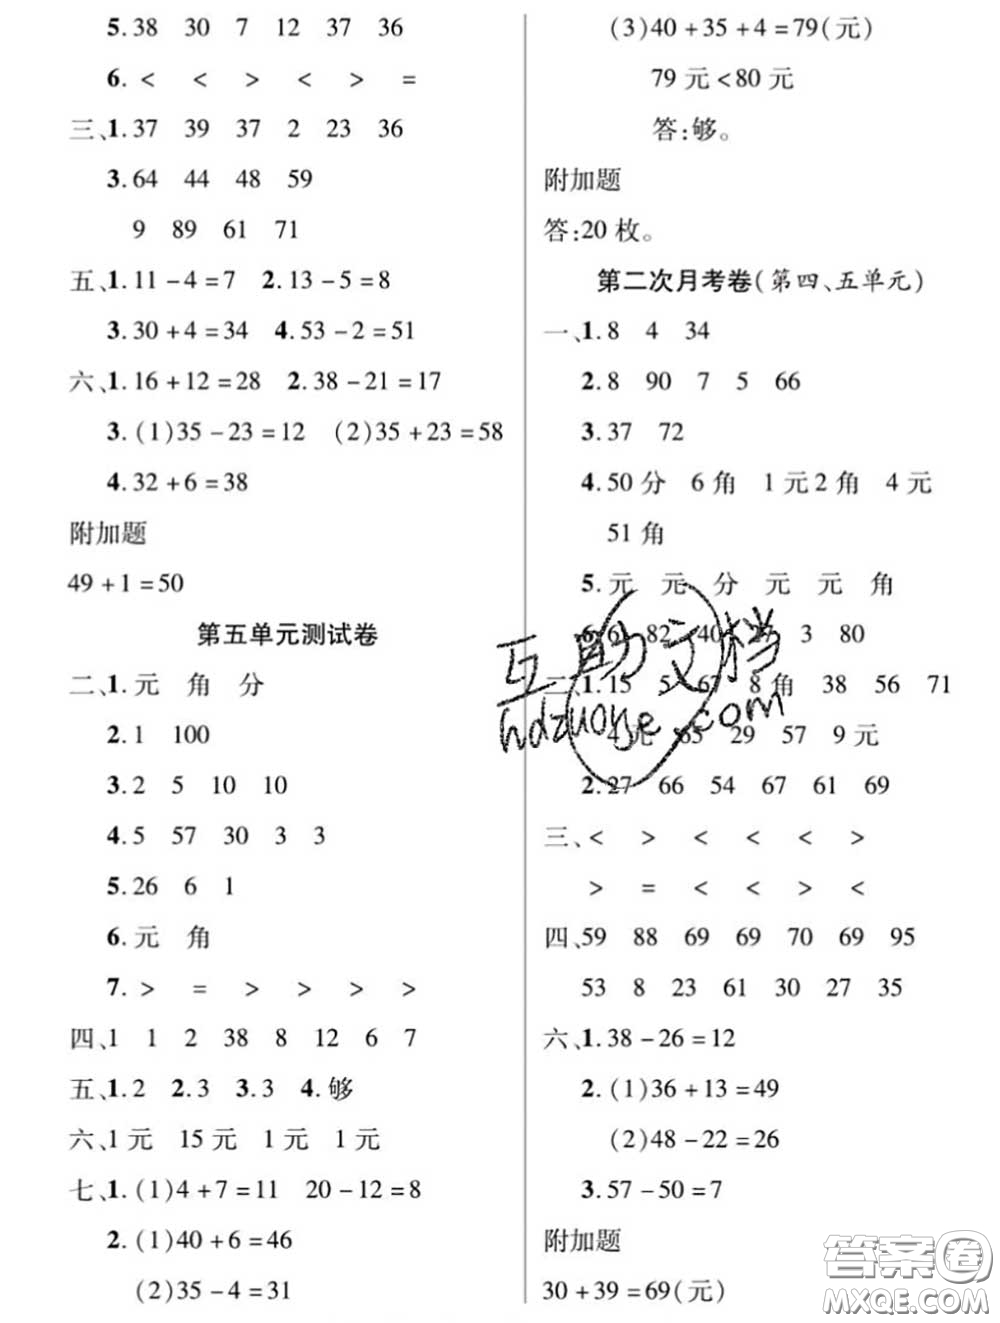 5.38 30 7 12 37 36
6. < < > < > =
三、1.37 39 37 2 23 36
3.64 44 48 59
9 89 61 71
五、1.11-4=7 2.13-5=8
3.30+4=34 4.53-2=51
六、1.16+12=28 2.38-21=17
3.(1)35-23=12 (2)35+23=58
4.32+6=38
附加题
49+1=50
第五单元测试卷
二、1.元 角 分
2.1 100
3.2 5 10 10
4.5 57 30 3 3
5.26 6 1
6.元 角
7. > = > > > >
四、1 1 2 38 8 12 6 7
五、1.2 2.3 3.3 4.够
六、1元 15元 1元 1元
七、1.(1)4+7=11 20-12=8
2.(1)40+6=46
(2)35-4=31
(3)40+35+4=79(元)
79元<80元
答:够。
附加题
答:20枚。
第二次月考卷(第四、五单元)
一、1.8 4 34
2.8 90 7 5 66
3.37 72
4.50分 6角 1元2角 4元
51角
5.元 元 分 元 元 角
6.6 82 40 27 3 80
二、1.15 5 67 8角 38 56 71
4元 65 29 57 9元
2.27 66 54 67 61 69
三、< > < < < >
> = < < > <
四、59 88 69 69 70 69 95
53 8 23 61 30 27 35
六、1.38-26=12
2.(1)36+13=49
(2)48-22=26
3.57-50=7
附加题
30+39=69(元)
互助文档
hdzuoye.com
答案圈
MXQE.COM